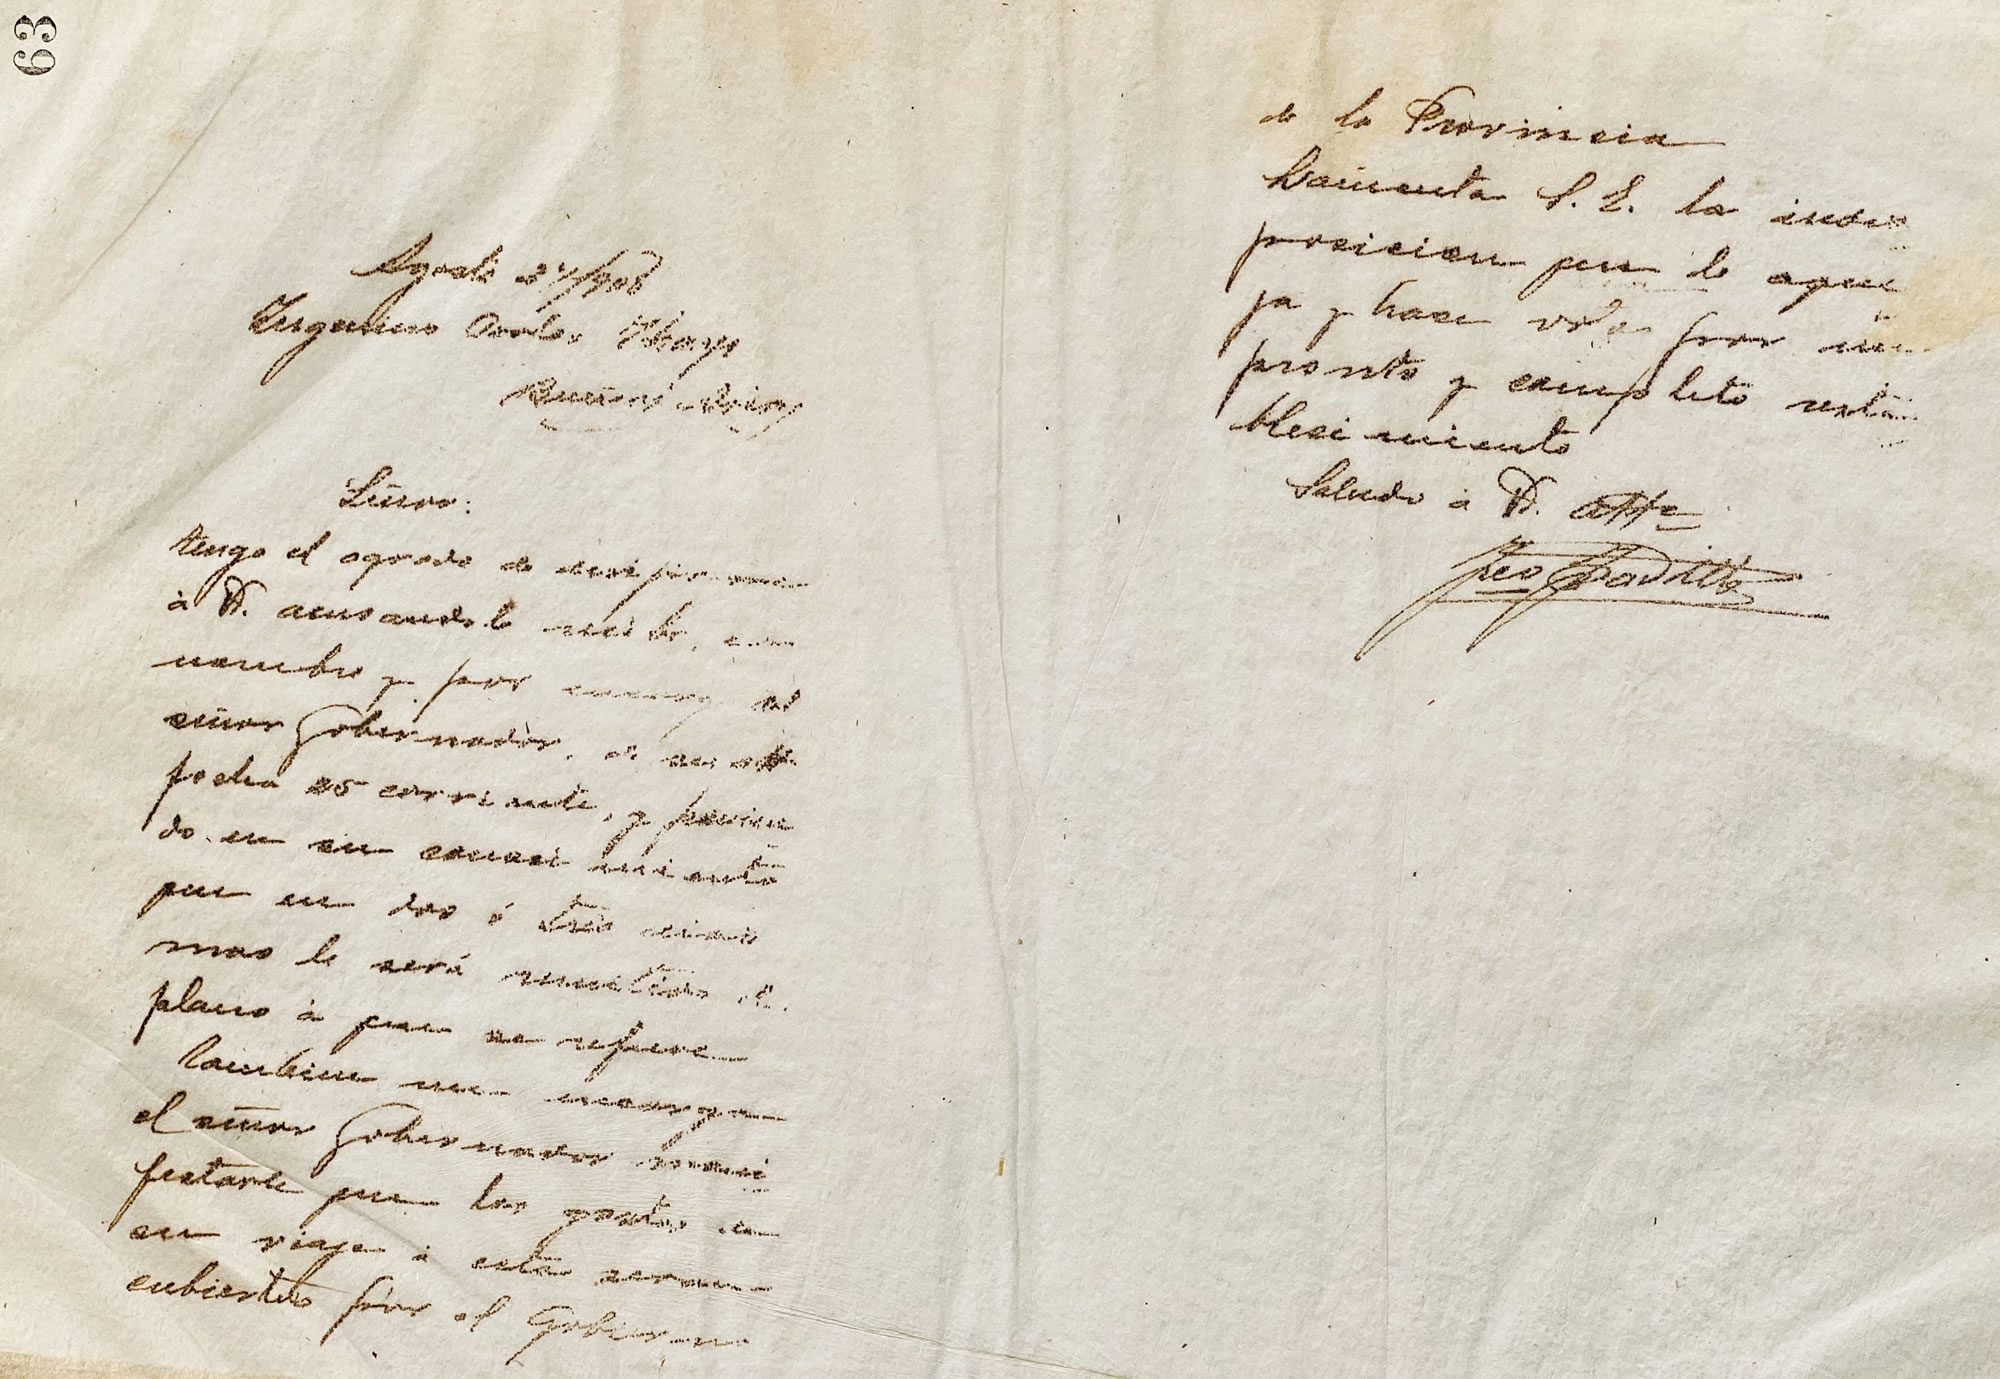 63
Agosto 27/908
Ingeniero Carlos Thays
Buenos Aires
Señor:
tengo el agrado de dirijirme
á Vd. acusandole recibo, en
nombre y por encargo del
señor Gobernador, de su
fecha 25 corriente, y ponien
do en su conocimiento
que en dos ó tres dias
mas le será remitido el
plano á que se refiere
Tambien me encarga
el señor Gobernador mani
festarle que los gastos de
su viaje á esta seran
cubiertos por el Gobierno
de la Provincia
Lamenta S. E. la indis
posicion que le aque
ja y hace votos por un
pronto y completo resta
blecimiento
Saludo á Vd. atte
Padilla